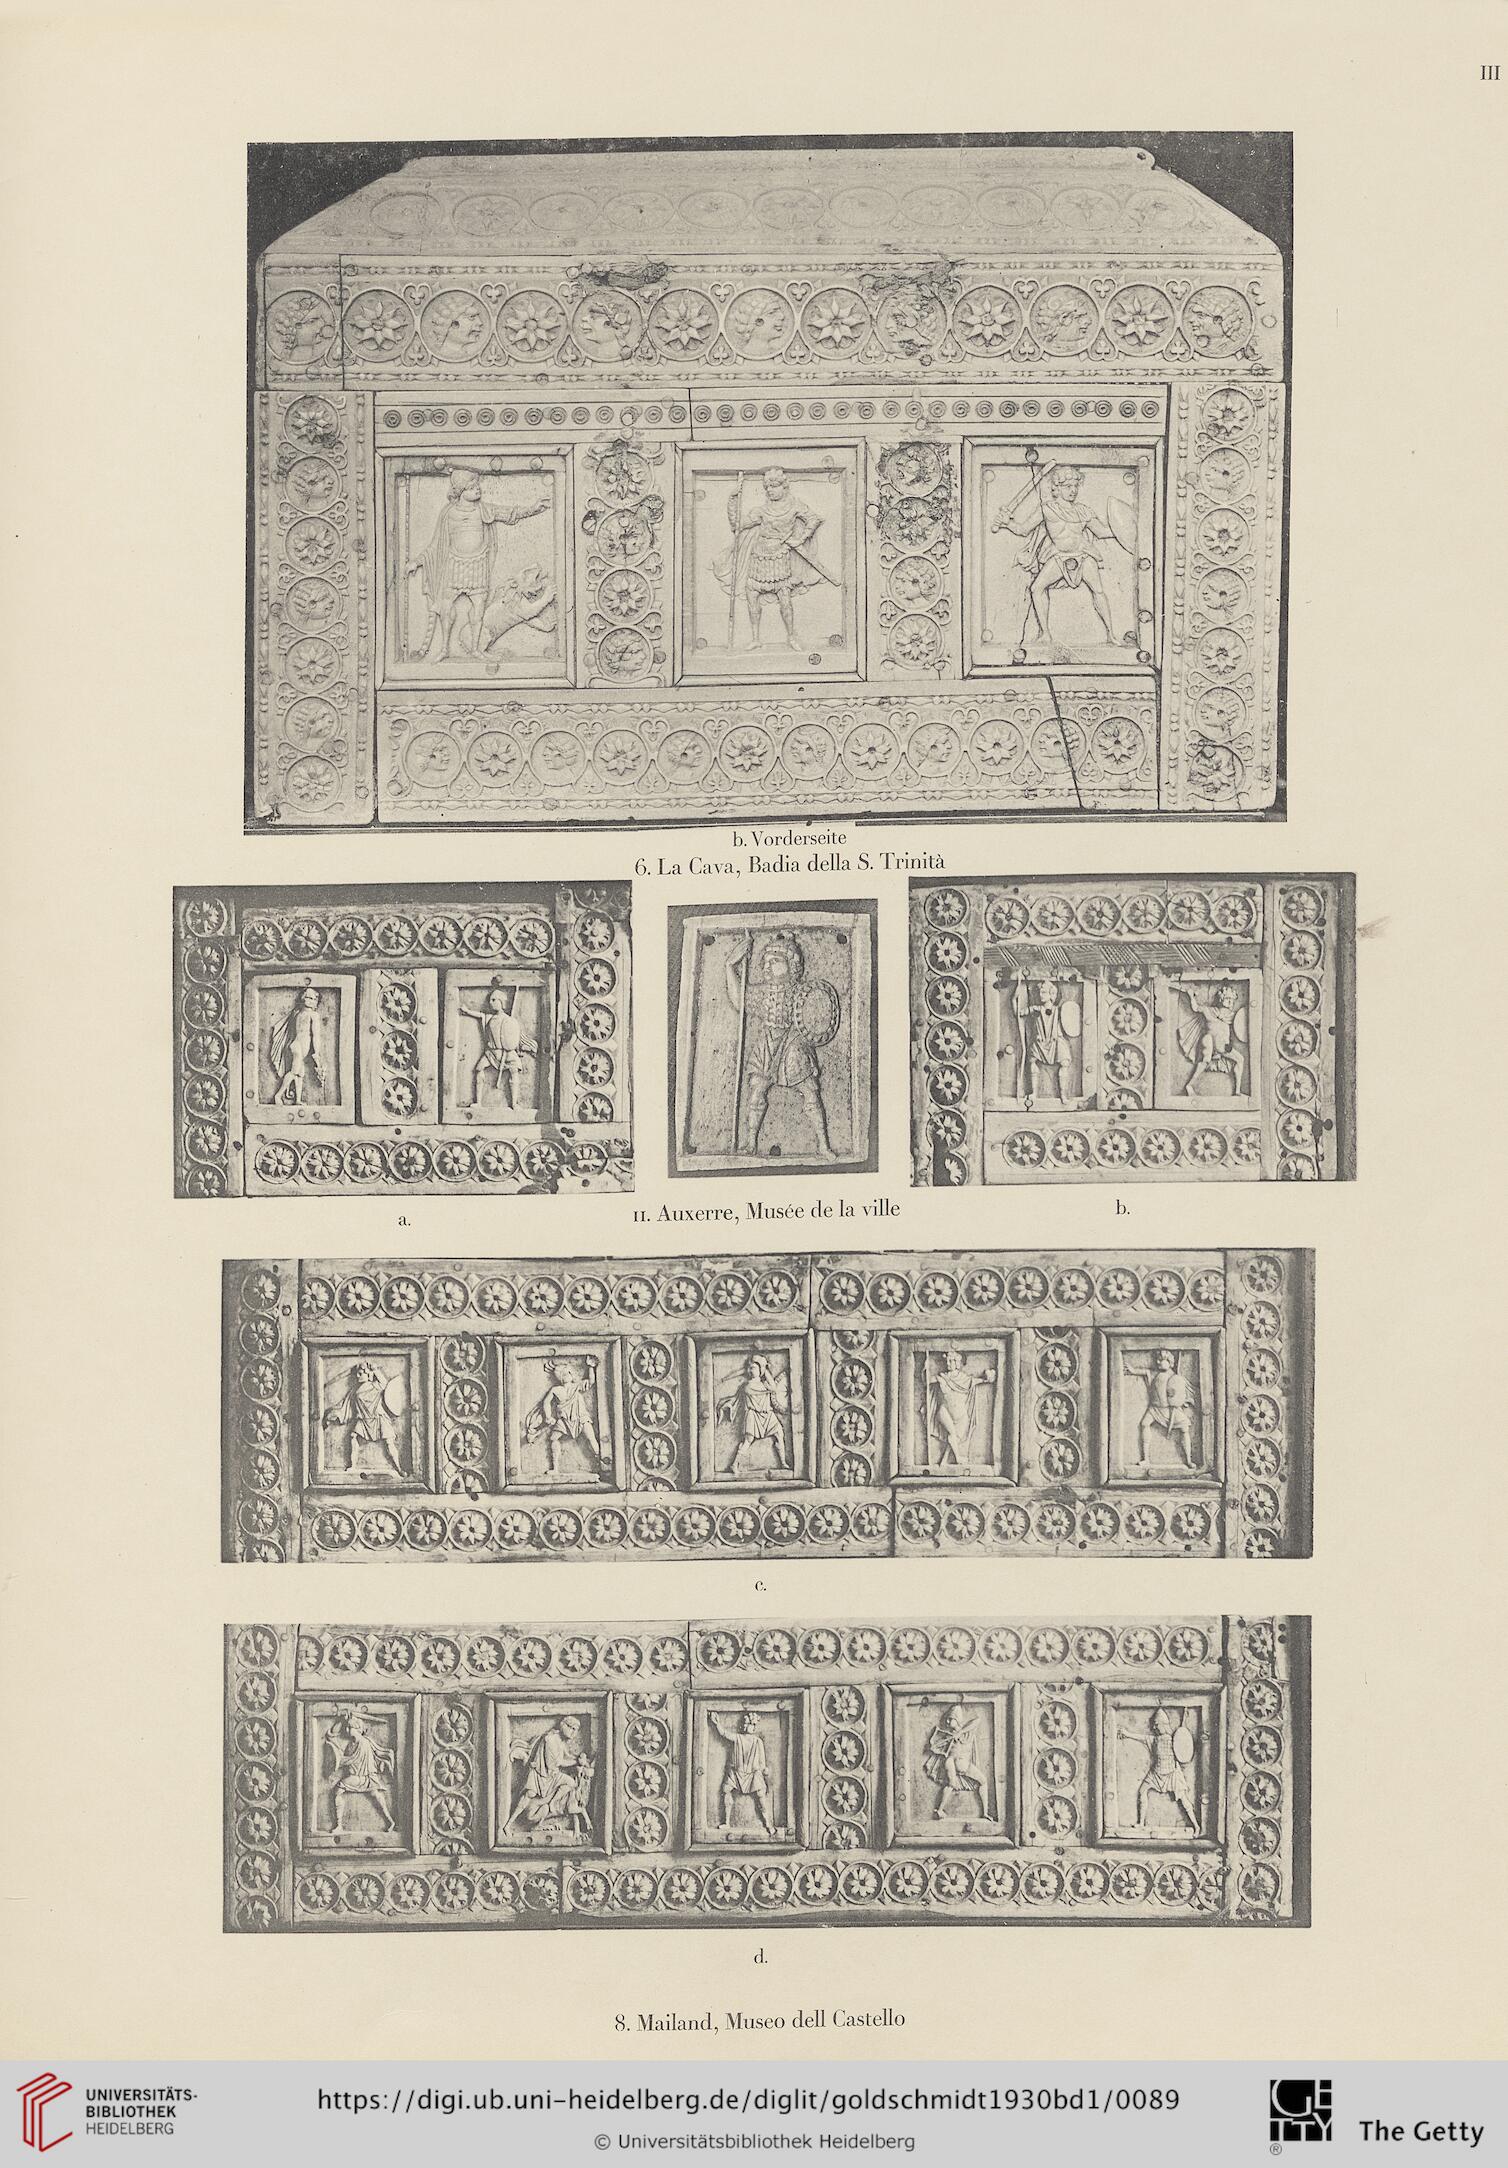 III
b. Vorderseite
6. La Cava, Badia della S. Trinità
a.
11. Auxerre, Musée de la ville
b.
c.
d.
8. Mailand, Museo dell Castello
UNIVERSITÄTS-
BIBLIOTHEK
HEIDELBERG
https://digi.ub.uni-heidelberg.de/diglit/goldschmidt1930bd1/0089
© Universitätsbibliothek Heidelberg
GETTY
®
The Getty